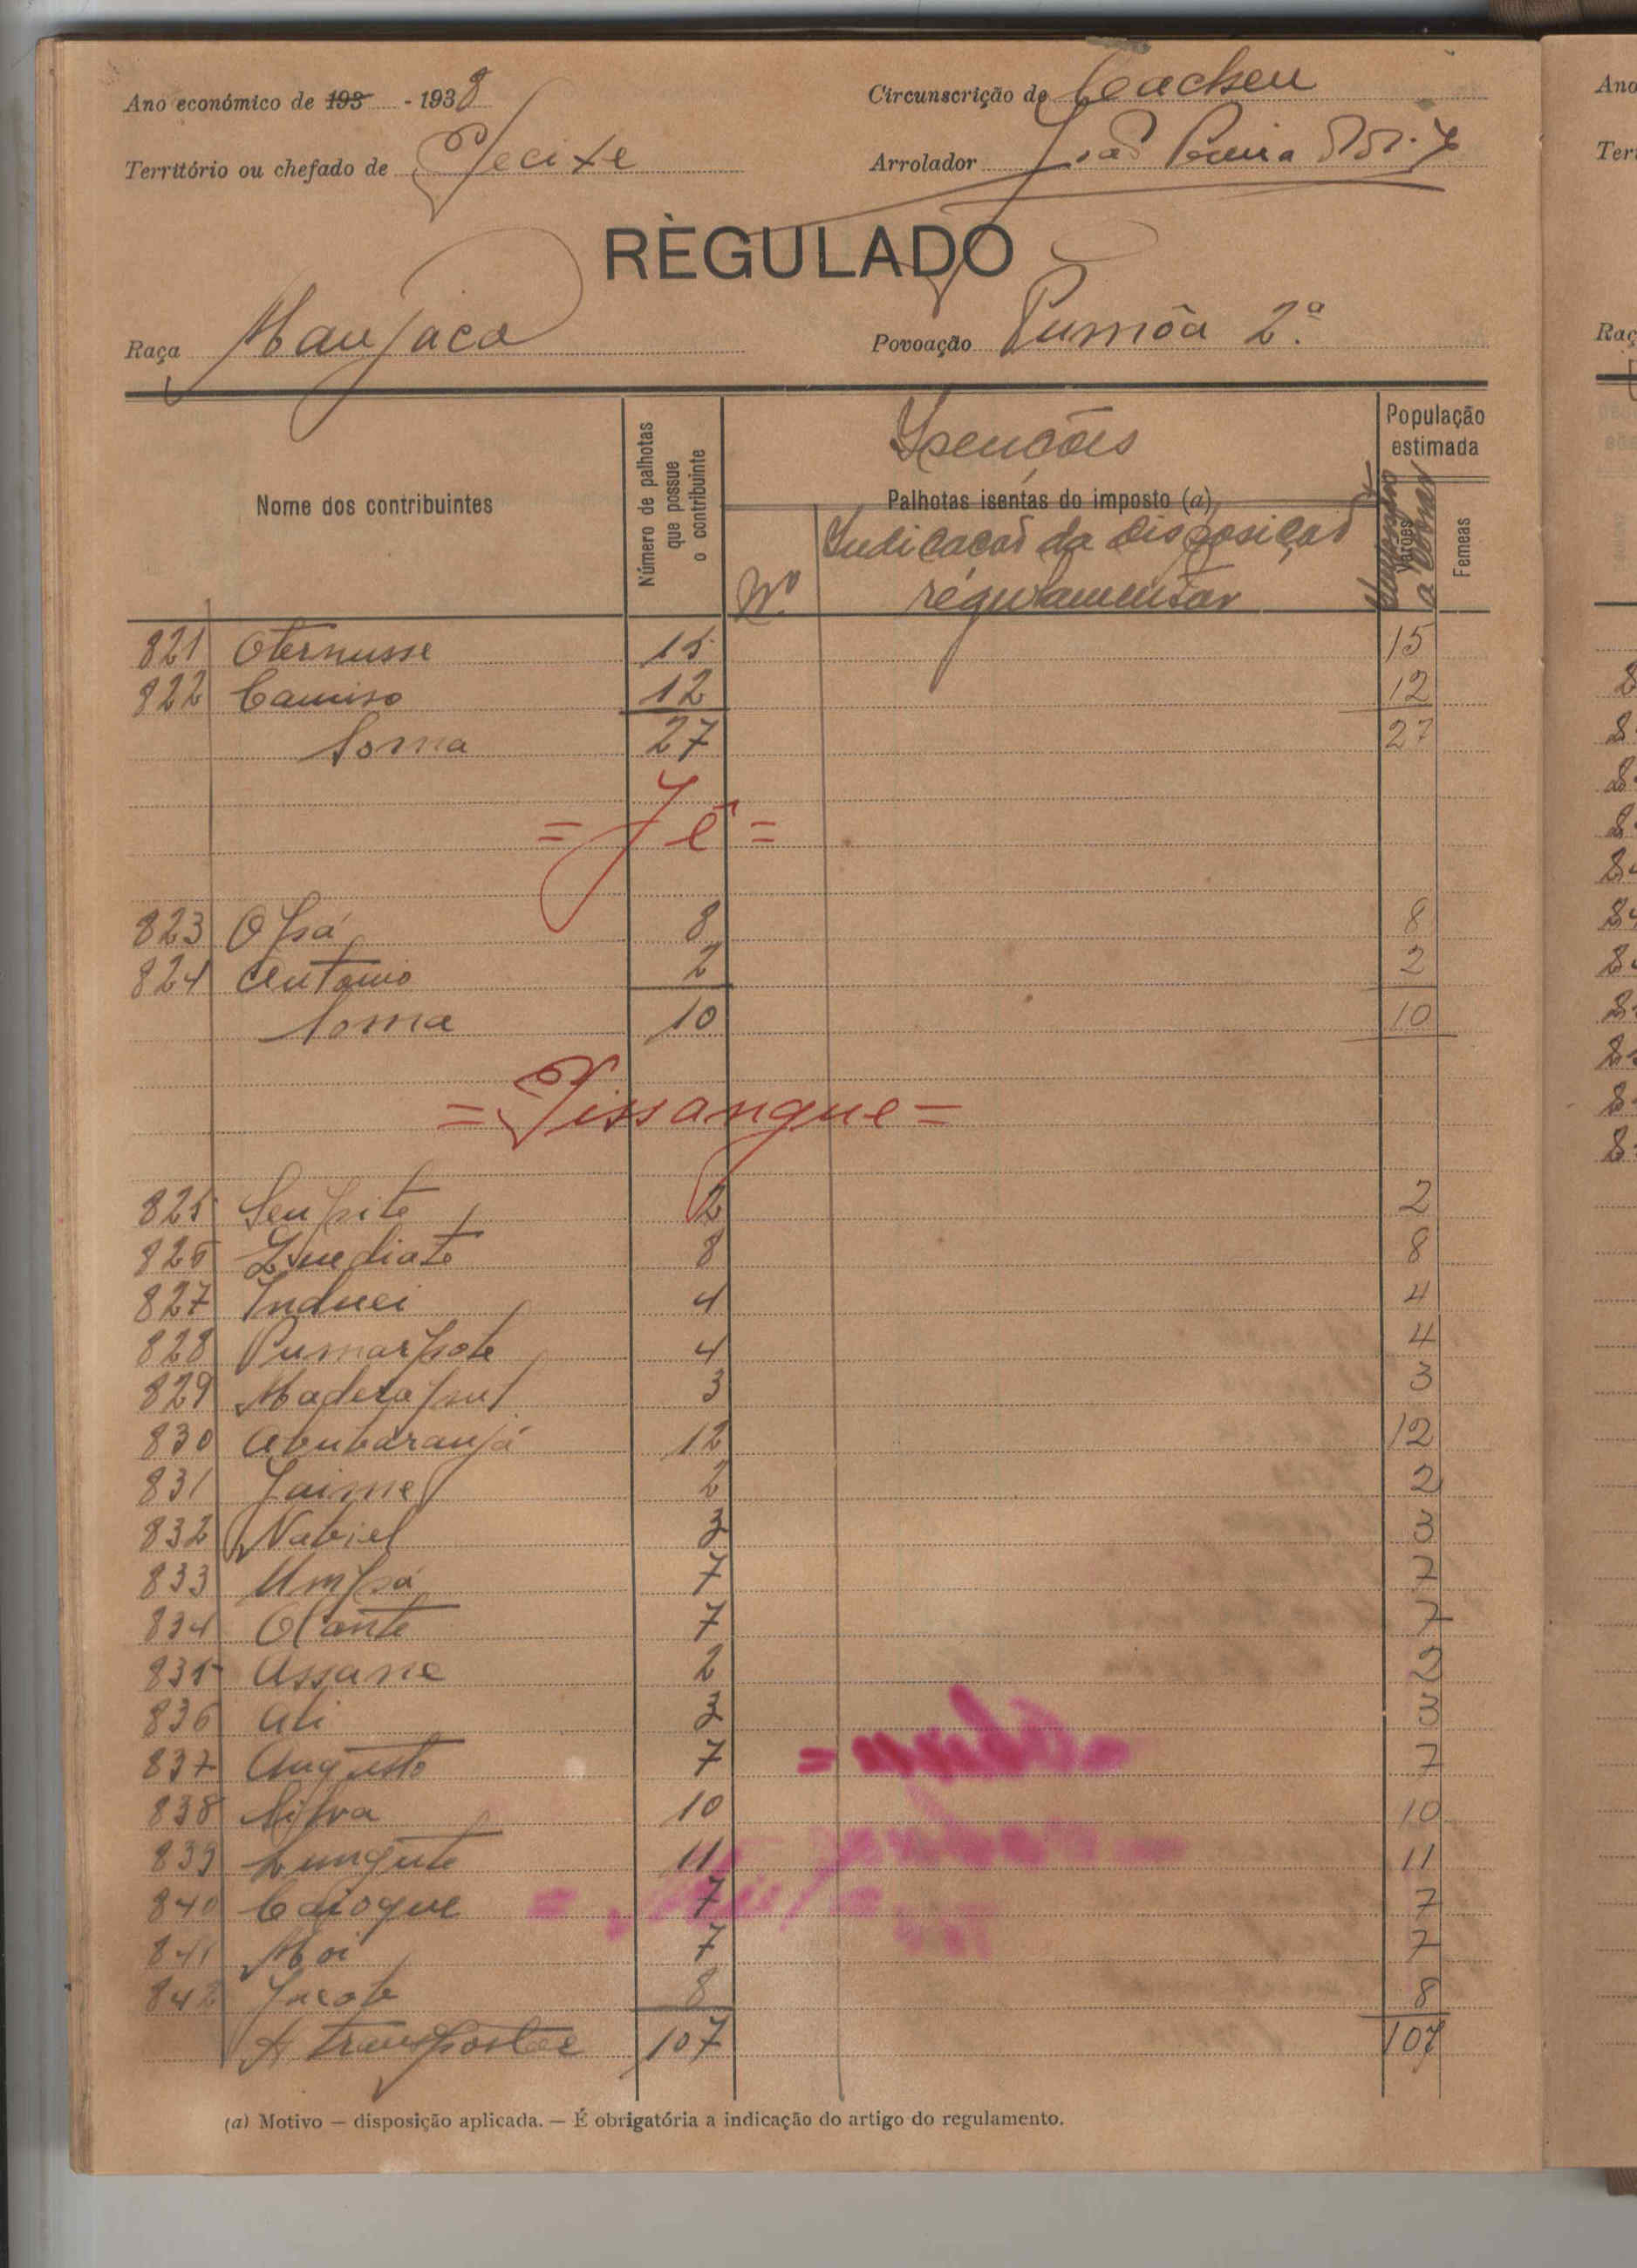 Ano económico de 193 - 1938
Circunscrição de Cacheu
Território ou chefado de Pecixe
Arrolador João Pereira
RÈGULADO
Raça Manjaca
Povoação Pumôa 2ª.
Nome dos contribuintes
Número de palhotas que possue o contribuinte
Isenções
Palhotas isentas do imposto (a)
Nº
Indicação da disposição
regulamentar
População estimada
Varões
a cobrar
Femeas
821 Oternusse 15 15
822 Camiso 12 12
Soma 27 27
= Jé =
823 Opá 8 8
824 Antonio 2 2
Soma 10 10
= Pissangue =
825 Senpite 2 2
826 Imediato 8 8
827 Induei 4 4
828 Pumarpote 4 4
829 3 3
830 Abubaranjá 12 12
831 Jaime 2 2
832 Nabiel 3 3
833 Umpá 7 7
834 Ocante 7 7
835 Assane 2 2
836 Ali 3 3
837 Augusto 7 7
838 Silva 10 10
839 Lungute 11 11
840 Caioque 7 7
841 Moi 7 7
842 Jacob 8 8
A transportar 107 107
(a) Motivo — disposição aplicada. — É obrigatória a indicação do artigo do regulamento.